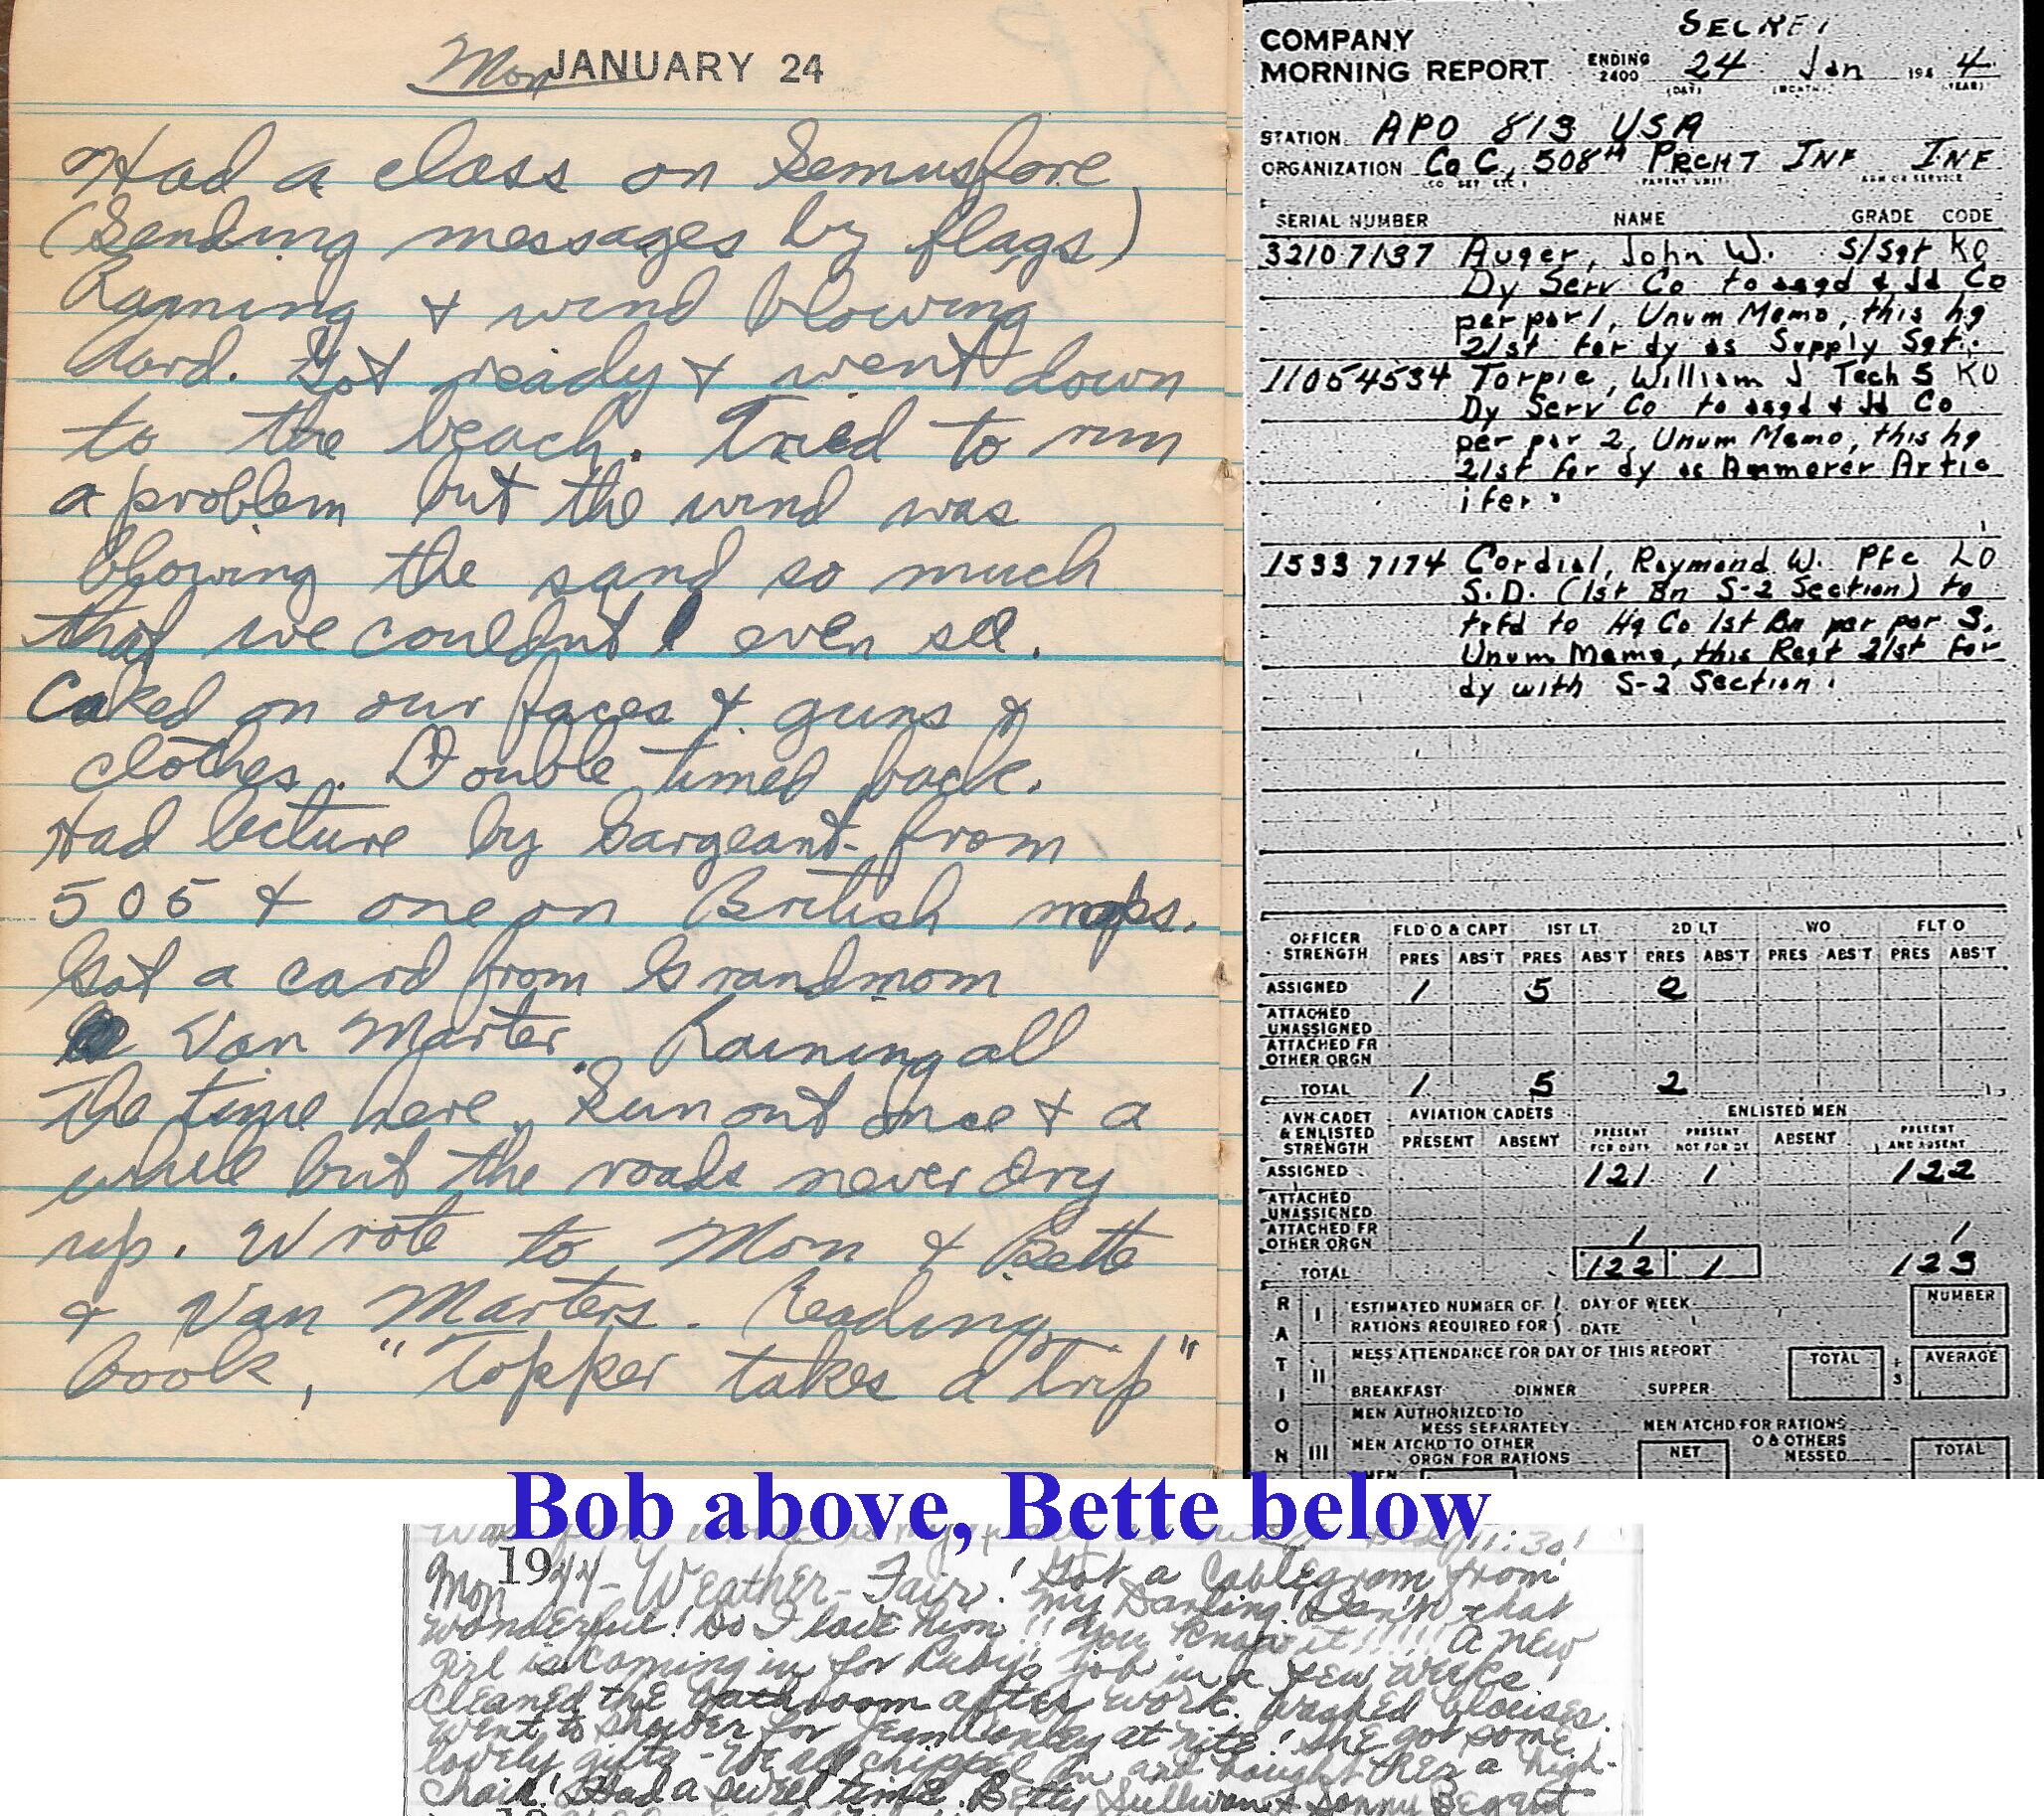 Mon JANUARY 24
Had a class on Semusfore
(Sending messages by flags)
Raining & wind blowing
hard. Got ready & went down
to the beach. Tried to run
a problem but the wind was
blowing the sand so much
that we couldnt even see.
Caked on our faces & guns &
clothes. Double timed back.
Had lecture by Sargeant from
505 & one on British maps.
Got a card from Grandmom
Van Marter. Raining all
the time here. Sun out once & a
while but the roads never dry
up. Wrote to Mom & Bette
& Van Marters. Reading
book, "Topper takes a Trip"
SECRET
COMPANY
MORNING REPORT ENDING 2400 24 Jan 194 4
(DAY) (MONTH) (YEAR)
STATION APO 813 USA
ORGANIZATION Co C, 508th PRCHT INF INF
(CO. DET. ETC.) PARENT UNIT ARM OR SERVICE
SERIAL NUMBER NAME GRADE CODE
32107137 Auger, John W. S/Sgt KO
Dy Serv Co to asgd & Jd Co
per par 1, Unum Memo, this hq
21st for dy as Supply Sgt.
11054534 Torpie, William J Tech 5 KO
Dy Serv Co to asgd & Jd Co
per par 2, Unum Memo, this hq
21st for dy as Ammerer Artic
ifer.
15337174 Cordial, Raymond W. Pfc LO
S.D. (1st Bn S-2 Section) to
trfd to Hq Co 1st Bn per par 3,
Unum Memo, this Regt 21st for
dy with S-2 Section.
OFFICER STRENGTH FLD O & CAPT 1ST LT 2D LT WO FLT O
PRES ABS'T PRES ABS'T PRES ABS'T PRES ABS'T PRES ABS'T
ASSIGNED 1 5 2
ATTACHED UNASSIGNED
ATTACHED FR OTHER ORGN
TOTAL 1 5 2
AVN CADET & ENLISTED STRENGTH AVIATION CADETS ENLISTED MEN
PRESENT ABSENT PRESENT FOR DUTY PRESENT NOT FOR DY ABSENT PRESENT AND ABSENT
ASSIGNED 121 1 122
ATTACHED UNASSIGNED
ATTACHED FR OTHER ORGN 1 1
TOTAL 122 1 123
RATION
I ESTIMATED NUMBER OF RATIONS REQUIRED FOR DAY OF WEEK DATE NUMBER
II MESS ATTENDANCE FOR DAY OF THIS REPORT TOTAL ÷ 3 AVERAGE
BREAKFAST DINNER SUPPER
III MEN AUTHORIZED TO MESS SEPARATELY MEN ATCHD FOR RATIONS
MEN ATCHD TO OTHER ORGN FOR RATIONS NET O & OTHERS MESSED TOTAL
MEN
Bob above, Bette below
11:30!
1944
Mon - Weather - Fair! Got a Cablegram from
my Darling! Isn't that
wonderful! Do I love him!! You know it!!!!! A new
girl is coming in for Ruby's job in a few weeks!
Cleaned the bathroom after work. Washed blouses.
Went to shower for Jean Conley at nite! She got some
lovely gifts - We all chipped in and bought her a high-
chair! Had a swell time. Betty Sullivan & Sonny